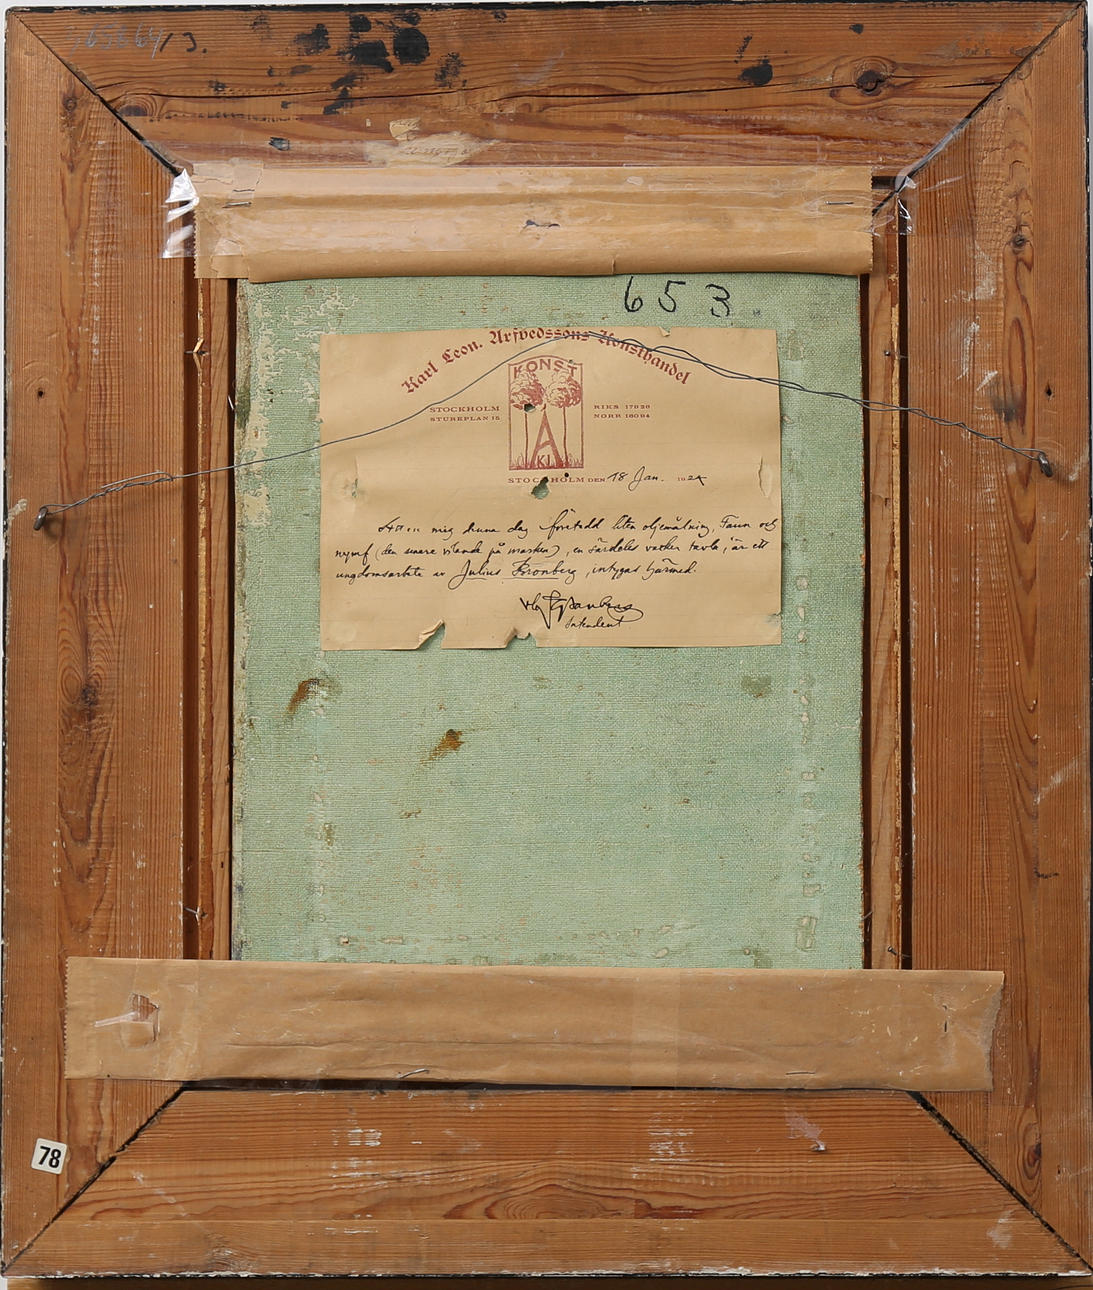 13.
653.
Karl Leon. Arfvedssons Konsthandel
KONST
STOCKHOLM
STUREPLAN 15
RIKS 179 26
NORR 160 94
A
KL
STOCKHOLM DEN 18 Jan. 1924
mig denna dag företedd liten oljemålning, Faun och
nymf (den senare vilande på marken), en särdeles vacker tavla, är ett
ungdomsarbete av Julius Kronberg, intygas härmed.
Intendent
78